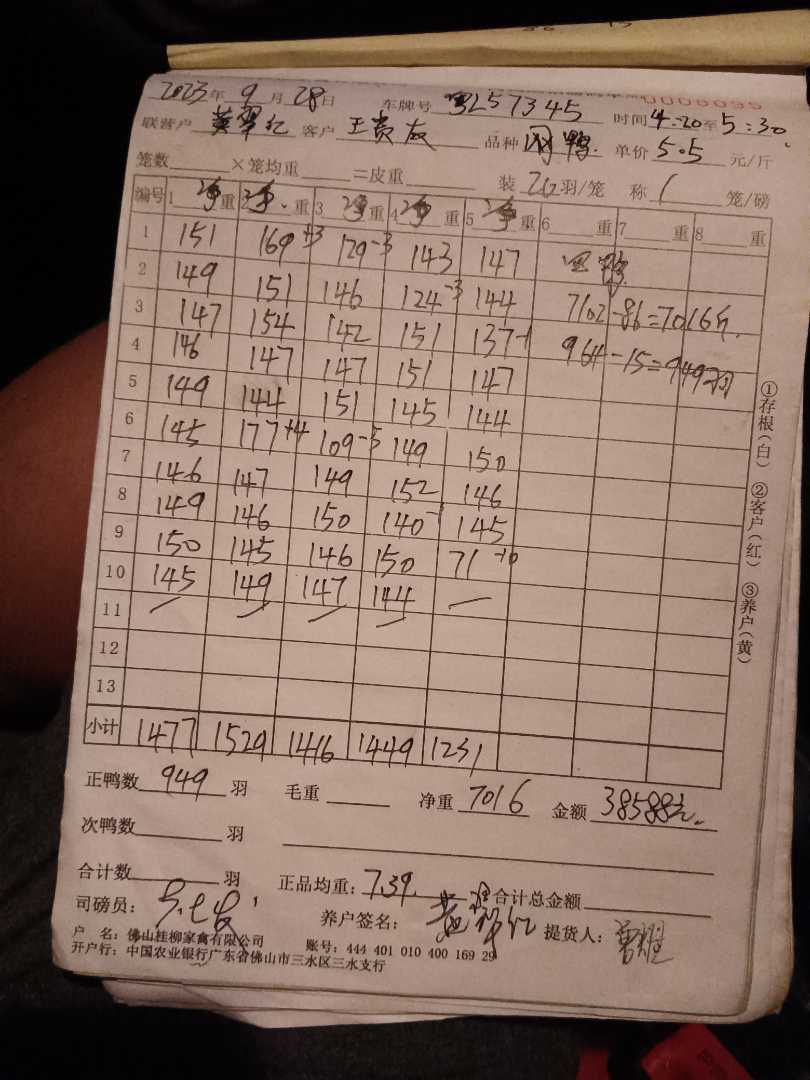 2023年9月28日 车牌号 粤L57345 时间4:20至5:30
联营户 客户 王贵友 品种 单价5.5元/斤
笼数 ×笼均重 =皮重 装20羽/笼 称1笼/磅
编号 1净重 2净重 3净重 4净重 5净重 6重 7重 8重
1 151 169+3 129-3 143 147
2 149 151 146 124-3 144 7102-86=7016斤
3 147 154 142 151 137-1 964-15=949羽
4 146 147 147 151 147
5 149 144 151 145 144
6 145 177+4 109-5 149 150
7 146 147 149 152 146
8 149 146 150 140-1 145
9 150 145 146 150 71-10
10 145 149 147 144
11
12
13
小计 1477 1529 1416 1449 1231
正鸭数949羽 毛重 净重7016 金额38588元
次鸭数 羽
合计数 羽 正品均重:7.39 合计总金额
司磅员: 养户签名: 提货人:
户 名:佛山桂柳家禽有限公司 账号:444 401 010 400 169 29
开户行:中国农业银行广东省佛山市三水区三水支行
①存根(白) ②客户(红) ③养户(黄)